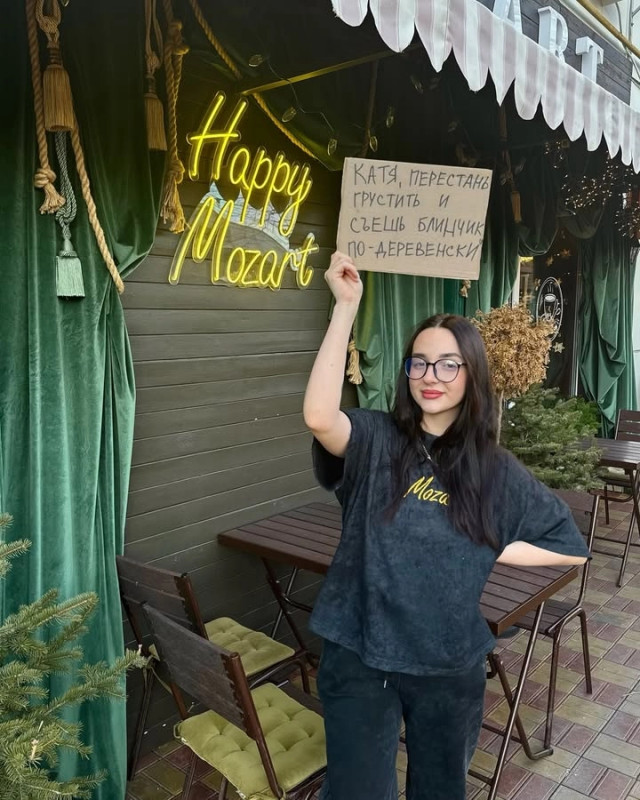 ART
Happy
Mozart
КАТЯ, ПЕРЕСТАНЬ
ГРУСТИТЬ И
СЪЕШЬ БЛИНЧИК
ПО-ДЕРЕВЕНСКИ
Moza